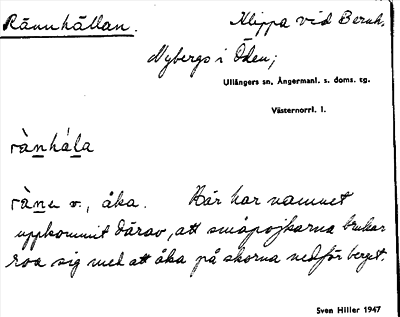 Rännhällan. Klippa vid Bernh.
Nybergs i Öden;
Ullångers sn, Ångermanl. s. doms. tg.
Västernorrl. l.
rànhá̀la
ràne v., åka. Här har namnet
uppkommit därav, att småpojkarna brukar
roa sig med att åka på skorna nedför berget.
Sven Hiller 1947